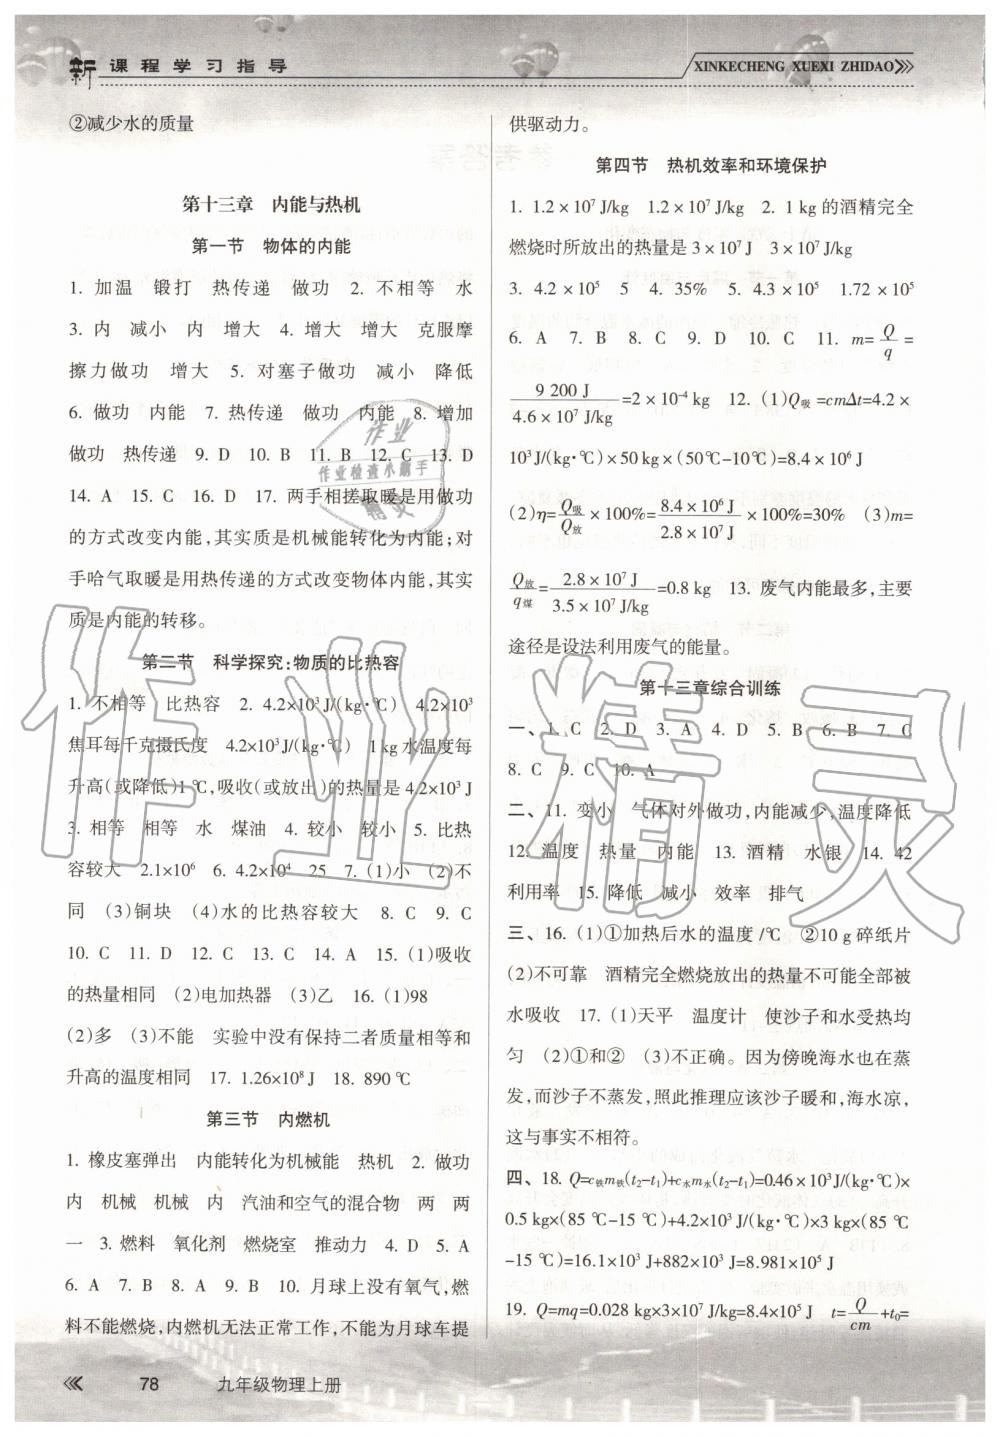 新课程学习指导
XINKECHENG XUEXI ZHIDAO
②减少水的质量
第十三章 内能与热机
第一节 物体的内能
1. 加温 锻打 热传递 做功 2. 不相等 水
3. 内 减小 内 增大 4. 增大 增大 克服摩
擦力做功 增大 5. 对塞子做功 减小 降低
6. 做功 内能 7. 热传递 做功 内能 8. 增加
做功 热传递 9. D 10. B 11. B 12. C 13. D
14. A 15. C 16. D 17. 两手相搓取暖是用做功
的方式改变内能,其实质是机械能转化为内能;对
手哈气取暖是用热传递的方式改变物体内能,其实
质是内能的转移。
第二节 科学探究:物质的比热容
1. 不相等 比热容 2. 4.2×10³J/(kg·℃) 4.2×10³
焦耳每千克摄氏度 4.2×10³J/(kg·℃) 1 kg水温度每
升高(或降低)1 ℃,吸收(或放出)的热量是 4.2×10³ J
3. 相等 相等 水 煤油 4. 较小 较小 5. 比热
容较大 2.1×10⁶ 6. 4.2×10⁴ 25 7. (1)小 (2)不
同 (3)铜块 (4)水的比热容较大 8. C 9. C
10. C 11. D 12. C 13. C 14. A 15. (1)吸收
的热量相同 (2)电加热器 (3)乙 16. (1)98
(2)多 (3)不能 实验中没有保持二者质量相等和
升高的温度相同 17. 1.26×10⁸ J 18. 890 ℃
第三节 内燃机
1. 橡皮塞弹出 内能转化为机械能 热机 2. 做功
内 机械 机械 内 汽油和空气的混合物 两 两
一 3. 燃料 氧化剂 燃烧室 推动力 4. D 5. A
6. A 7. B 8. A 9. B 10. 月球上没有氧气,燃
料不能燃烧,内燃机无法正常工作,不能为月球车提
供驱动力。
第四节 热机效率和环境保护
1. 1.2×10⁷ J/kg 1.2×10⁷ J/kg 2. 1 kg的酒精完全
燃烧时所放出的热量是 3×10⁷ J 3×10⁷ J/kg
3. 4.2×10⁵ 5 4. 35% 5. 4.3×10⁵ 1.72×10⁵
6. A 7. B 8. C 9. D 10. C 11. m=Q/q=
9 200 J/4.6×10⁷ J/kg=2×10⁻⁴ kg 12. (1)Q吸=cmΔt=4.2×
10³J/(kg·℃)×50 kg×(50℃-10℃)=8.4×10⁶ J
(2)η=Q吸/Q放×100%=8.4×10⁶ J/2.8×10⁷ J×100%=30% (3)m=
Q放/q煤=2.8×10⁷ J/3.5×10⁷ J/kg=0.8 kg 13. 废气内能最多,主要
途径是设法利用废气的能量。
第十三章综合训练
一、1. C 2. D 3. A 4. D 5. B 6. B 7. C
8. C 9. C 10. A
二、11. 变小 气体对外做功,内能减少,温度降低
12. 温度 热量 内能 13. 酒精 水银 14. 42
利用率 15. 降低 减小 效率 排气
三、16. (1)①加热后水的温度/℃ ②10 g碎纸片
(2)不可靠 酒精完全燃烧放出的热量不可能全部被
水吸收 17. (1)天平 温度计 使沙子和水受热均
匀 (2)①和② (3)不正确。因为傍晚海水也在蒸
发,而沙子不蒸发,照此推理应该沙子暖和,海水凉,
这与事实不相符。
四、18. Q=c铁m铁(t₂-t₁)+c水m水(t₂-t₁)=0.46×10³J/(kg·℃)×
0.5 kg×(85 ℃-15 ℃)+4.2×10³ J/(kg·℃)×3 kg×(85 ℃
-15 ℃)=16.1×10³ J+882×10³ J=8.981×10⁵ J
19. Q=mq=0.028 kg×3×10⁷ J/kg=8.4×10⁵ J t=Q/cm+t₀=
78 九年级物理上册
作业
作业检查小帮手
精灵
作业精灵